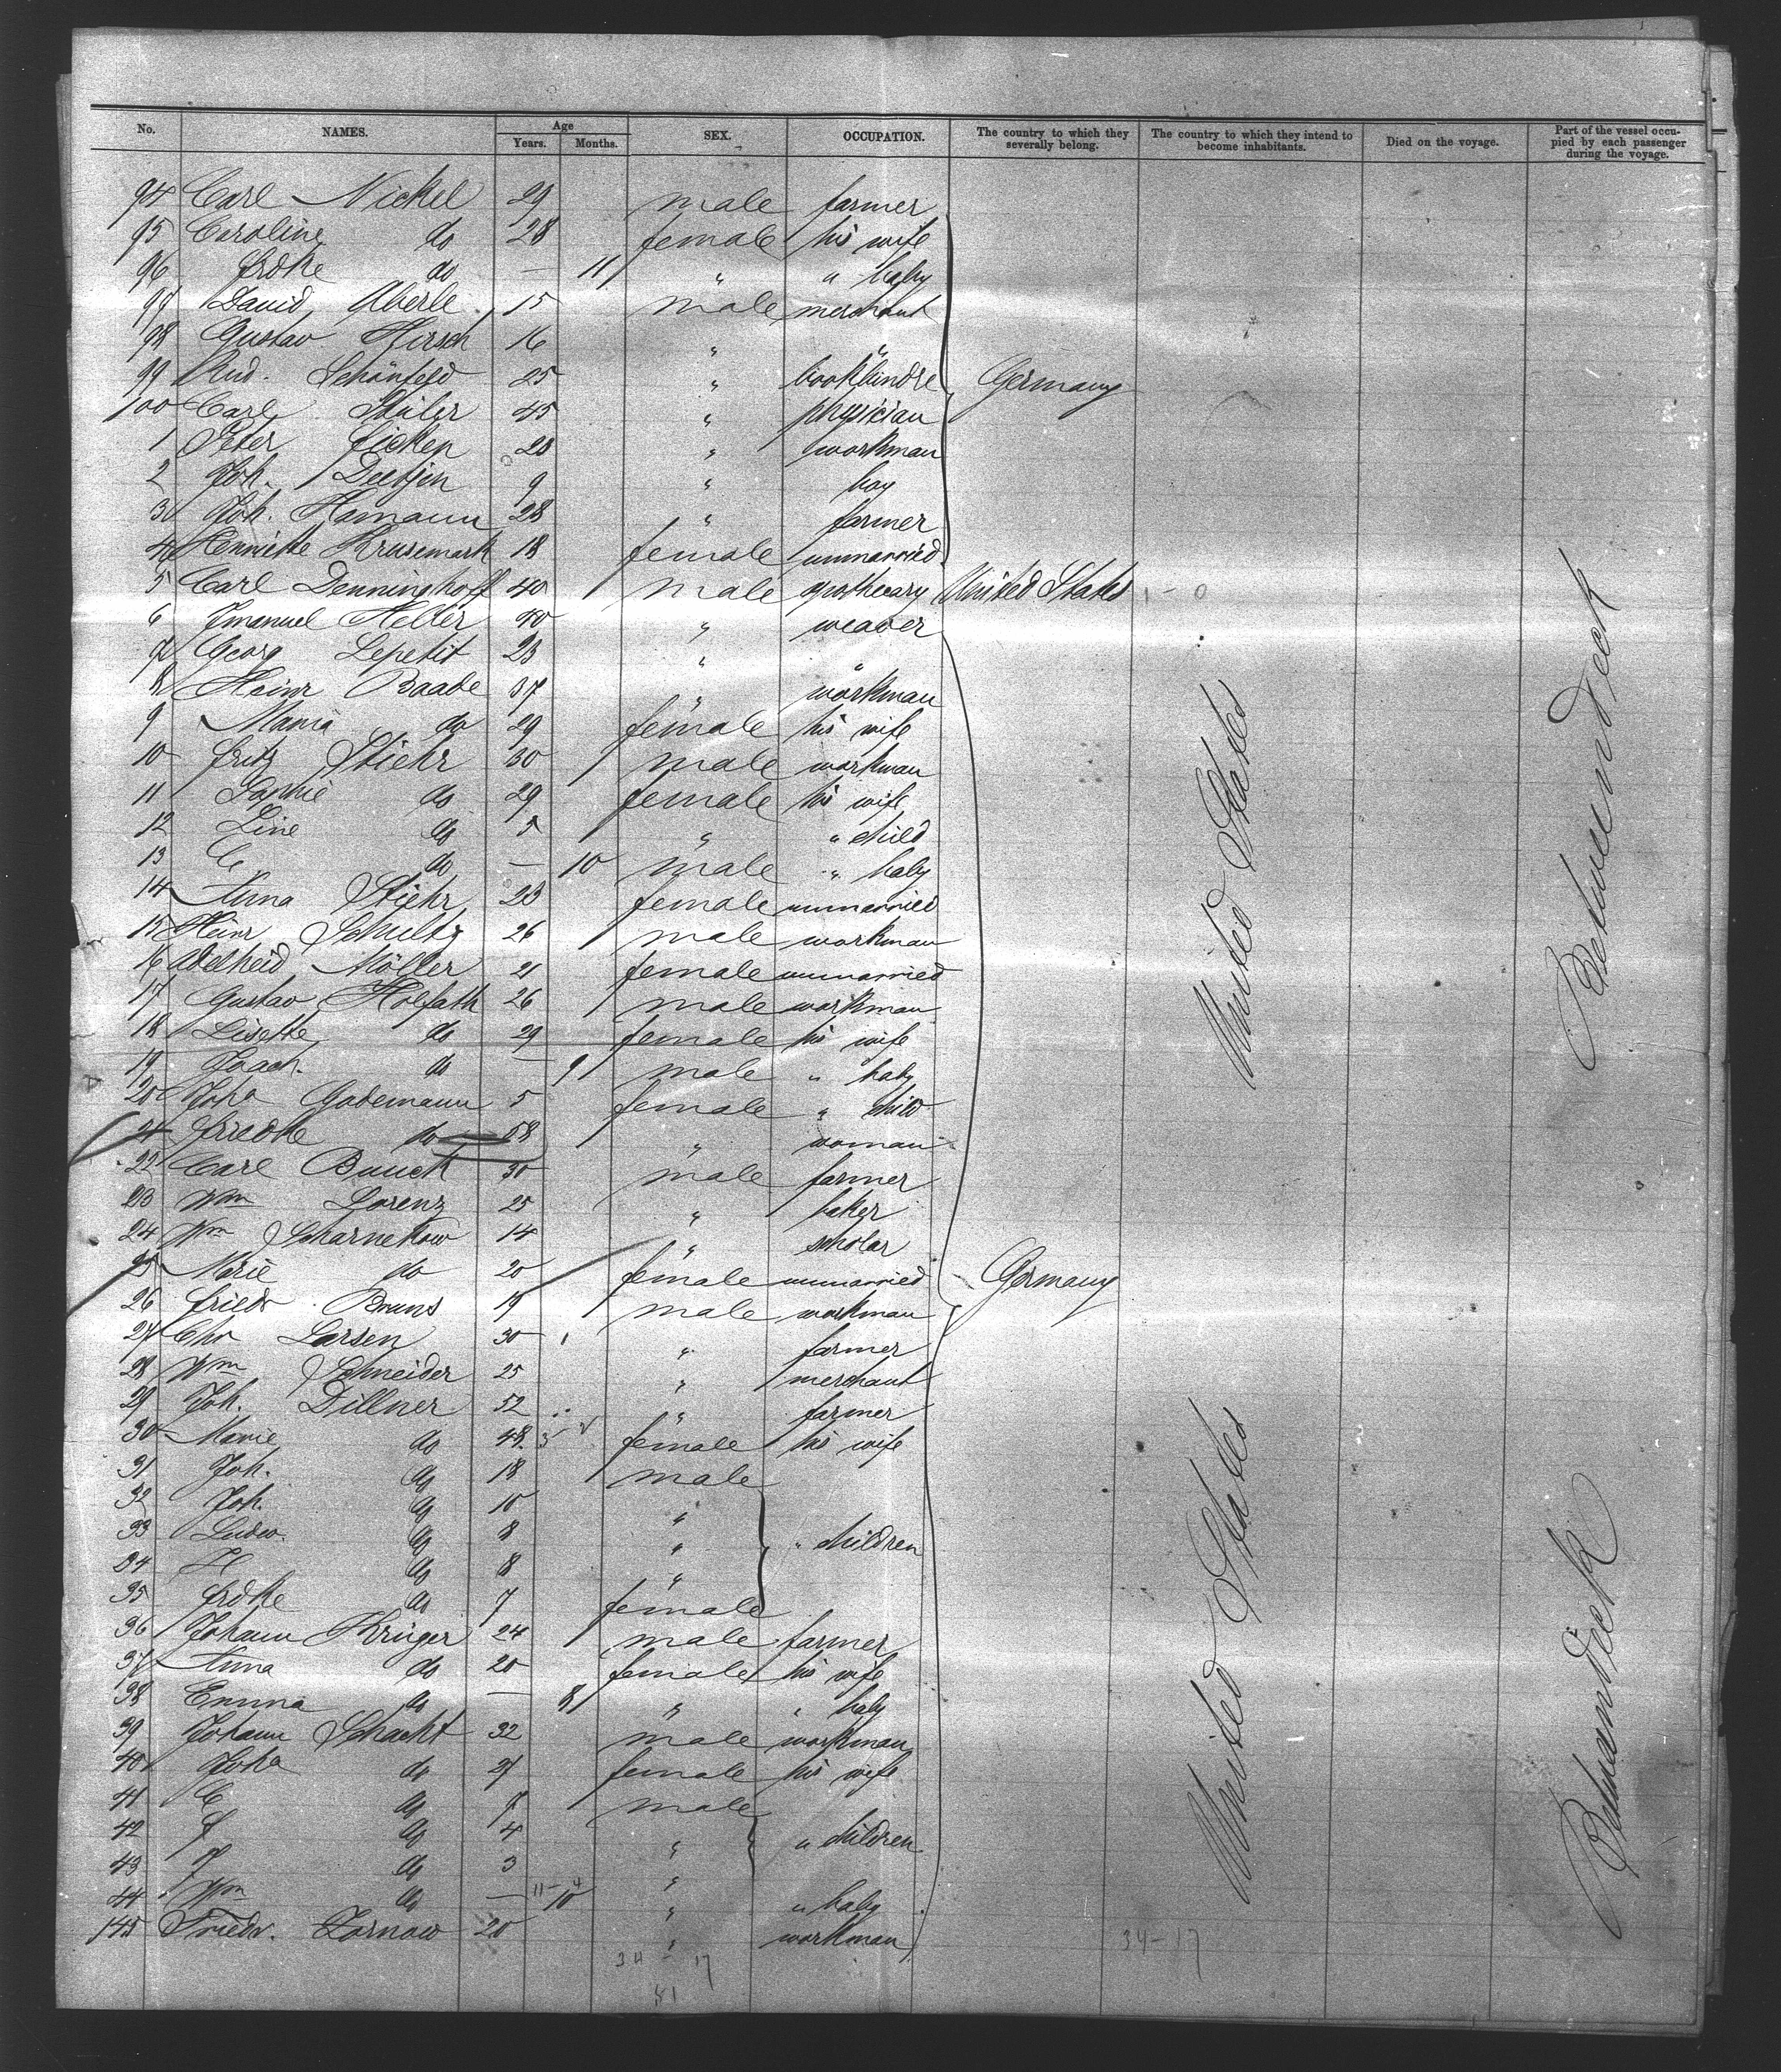 No. NAMES. Age Years. Months. SEX. OCCUPATION. The country to which they severally belong. The country to which they intend to become inhabitants. Died on the voyage. Part of the vessel occupied by each passenger during the voyage.
94 Carl Nickel 29 male farmer
95 Caroline do 28 female his wife
96 Frdke do — 11 " " baby
97 David Aberle 15 male merchant
98 Gustav Hirsch 16 " "
99 Rud. Schönfeld 25 " bookbindre Germany
100 Carl 45 " physician
1 Peter 28 " workman
2 Joh. Deetjen 9 " boy
3 Joh. Hamann 28 " farmer
4 Henriette Krusemark 18 female unmarried
5 Carl Denninghoff 40 male apothecary United States
6 Imanuel Heller 40 " weaver
7 Georg Lepetit 23 " "
8 Heinr Baade 37 " workman
9 Maria do 29 female his wife
10 Fritz Stiehr 30 male workman
11 Sophie do 29 female his wife
12 Line do 5 " " child
13 C do — 10 male " baby
14 Anna Stiehr 23 female unmarried
15 Heinr Schultz 26 male workman
16 Adelheid Möller 21 female unmarried
17 Gustav Holfath 26 male workman
18 Lisette do 29 female his wife
19 Joach. do — 9 male " baby
20 Joha Gademann 5 female " child
21 Friedke do 58 " woman
22 Carl Bunck 30 male farmer
23 Wm Lorenz 25 " baker
24 Wm Scharnekow 14 " scholar
25 Marie do 20 female unmarried Germany
26 Friedr Bruns 19 male workman
27 Chr Larsen 30 " farmer
28 Wm Schneider 25 " merchant
29 Joh. Dillner 52 " farmer
30 Marie do 48 female his wife
31 Joh. do 18 male
32 Joh. do 10 "
33 Ludw. do 8 " " children
34 H do 8 "
35 Frdke do 7 female
36 Johann Krüger 24 male farmer
37 Anna do 20 female his wife
38 Emma do — 8 " " baby
39 Johann Schacht 32 male workman
40 Joha do 27 female his wife
41 C do 7 male
42 F do 4 " " children
43 do 3 "
44 Wm do — 10 " " baby
145 Friedr. Zornow 20 " workman
34 - 17
34-17
United States
Betweendeck
United States
Betweendeck